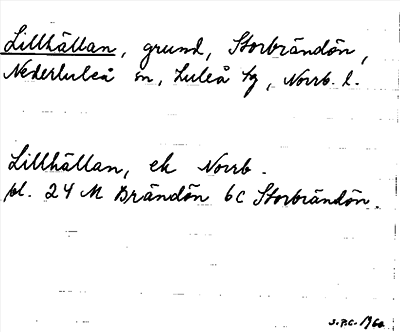 Lillhällan, grund, Storbrändön,
Nederluleå sn, Luleå tg, Norrb. l.
Lillhällan, ek Norrb.
pl. 24 M Brändön 6C Storbrändön.
S.P.C. 1960